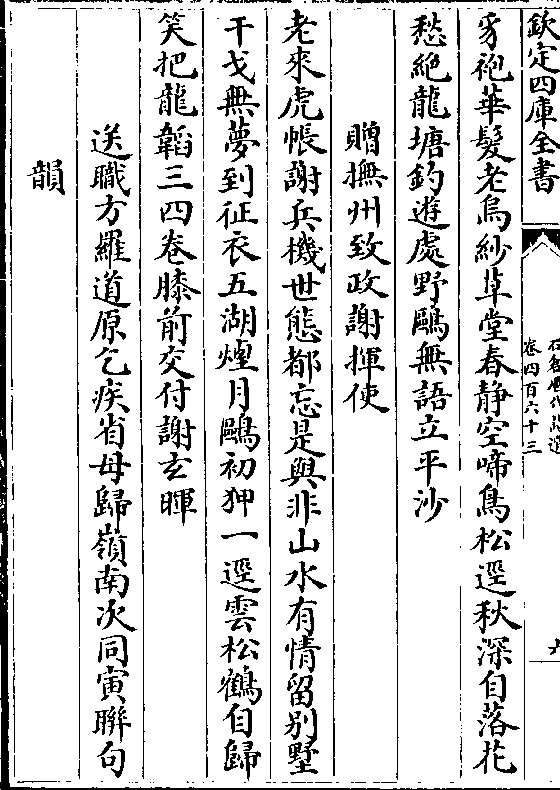 欽定四庫全書
卷四百六十三
豸袍華髮老烏紗草堂春静空啼鳥松逕秋深自落花
愁絶龍塘釣遊處野鷗無語立平沙
贈撫州致政謝揮使
老來虎帳謝兵機世態都忘是與非山水有情留别墅
干戈無夢到征衣五湖煙月鷗初狎一逕雲松鶴自歸
笑把龍韜三四卷膝前交付謝玄暉
送職方羅道原乞疾省母歸嶺南次同寅聨句
韻